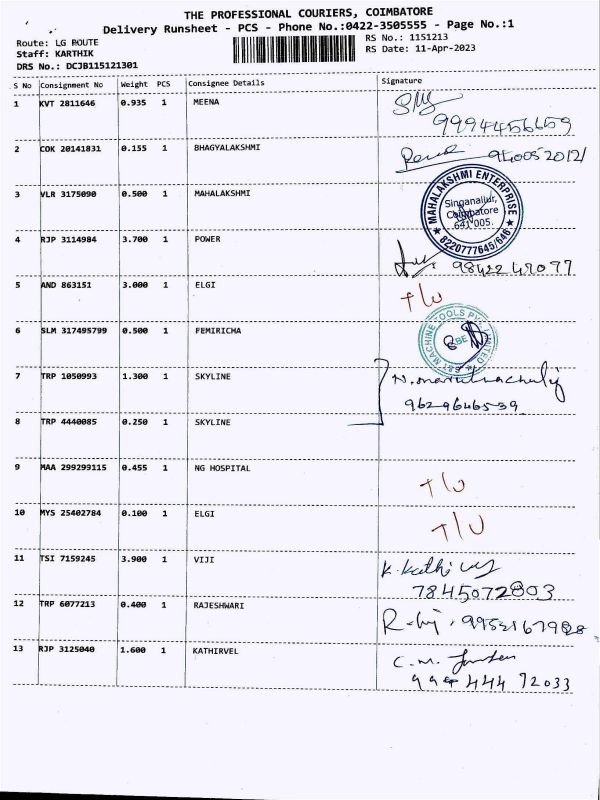 THE PROFESSIONAL COURIERS, COIMBATORE
Delivery Runsheet - PCS - Phone No.:0422-3505555 - Page No.:1
Route: LG ROUTE
Staff: KARTHIK
DRS No.: DCJB115121301
RS No.: 1151213
RS Date: 11-Apr-2023
S No Consignment No Weight PCS Consignee Details Signature
1 KVT 2811646 0.935 1 MEENA
9994456659
2 COK 20141831 0.155 1 BHAGYALAKSHMI
940052012/
3 VLR 3175090 0.500 1 MAHALAKSHMI
MAHALAKSHMI ENTERPRISE
Singanallur,
Coimbatore
641 005.
8220777645/646
4 RJP 3114984 3.700 1 POWER
98422 47077
5 AND 863151 3.000 1 ELGI
T/U
6 SLM 317495799 0.500 1 FEMIRICHA
MACHINE TOOLS PVT LIMITED
7 TRP 1050993 1.300 1 SKYLINE
9629646539
8 TRP 4440085 0.250 1 SKYLINE
9 MAA 299299115 0.455 1 NG HOSPITAL
T/U
10 MYS 25402784 0.100 1 ELGI
T/U
11 TSI 7159245 3.900 1 VIJI
7845072803
12 TRP 6077213 0.400 1 RAJESHWARI
13 RJP 3125040 1.600 1 KATHIRVEL
C.M.